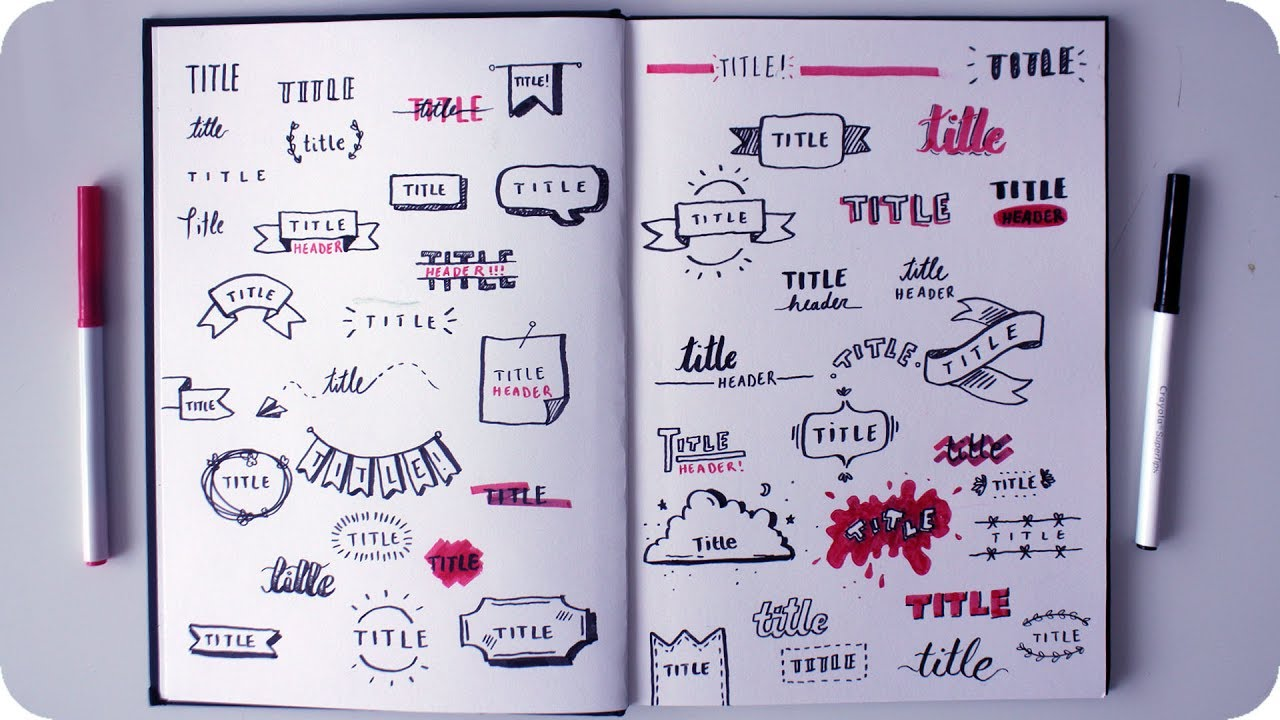 TITLE
TITLE
title
TITLE
TITLE!
title
title
TITLE
TITLE
TITLE
Title
TITLE
HEADER
TITLE
HEADER!!!
TITLE
TITLE
TITLE
title
TITLE
HEADER
TITLE
TITLE!
TITLE
TITLE
TITLE
TITLE
title
TITLE
TITLE
TITLE
TITLE!
TITLE
TITLE
title
TITLE
TITLE
TITLE
HEADER
TITLE
header
title
HEADER
TITLE
TITLE
title
HEADER
TITLE
HEADER!
TiTLE
title
TITLE
Title
TITLE
TITLE
title
TITLE
TITLE
TITLE
TITLE
title
Crayola SuperTips